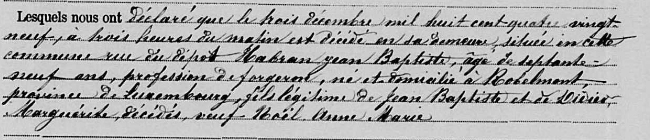 Lesquels nous ont déclaré que le trois décembre mil huit cent quatre vingt-
neuf, à trois heures du matin est décédé en sa demeure, située en cette
commune rue du dépôt Habran Jean Baptiste, âgé de septante-
neuf ans, profession de forgeron, né et domicilié à Robelmont,
province de Luxembourg, fils légitime de Jean Baptiste et de Didier,
Marguérite, décédés, veuf Noël Anne Marie